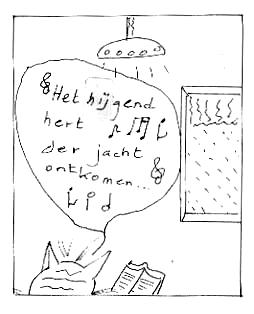 Het hijgend
hert
der jacht
ontkomen...